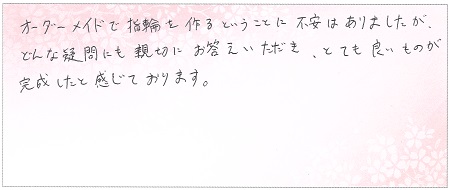 オーダーメイドで指輪を作るということに不安はありましたが、
どんな疑問にも親切にお答えいただき、とても良いものが
完成したと感じております。